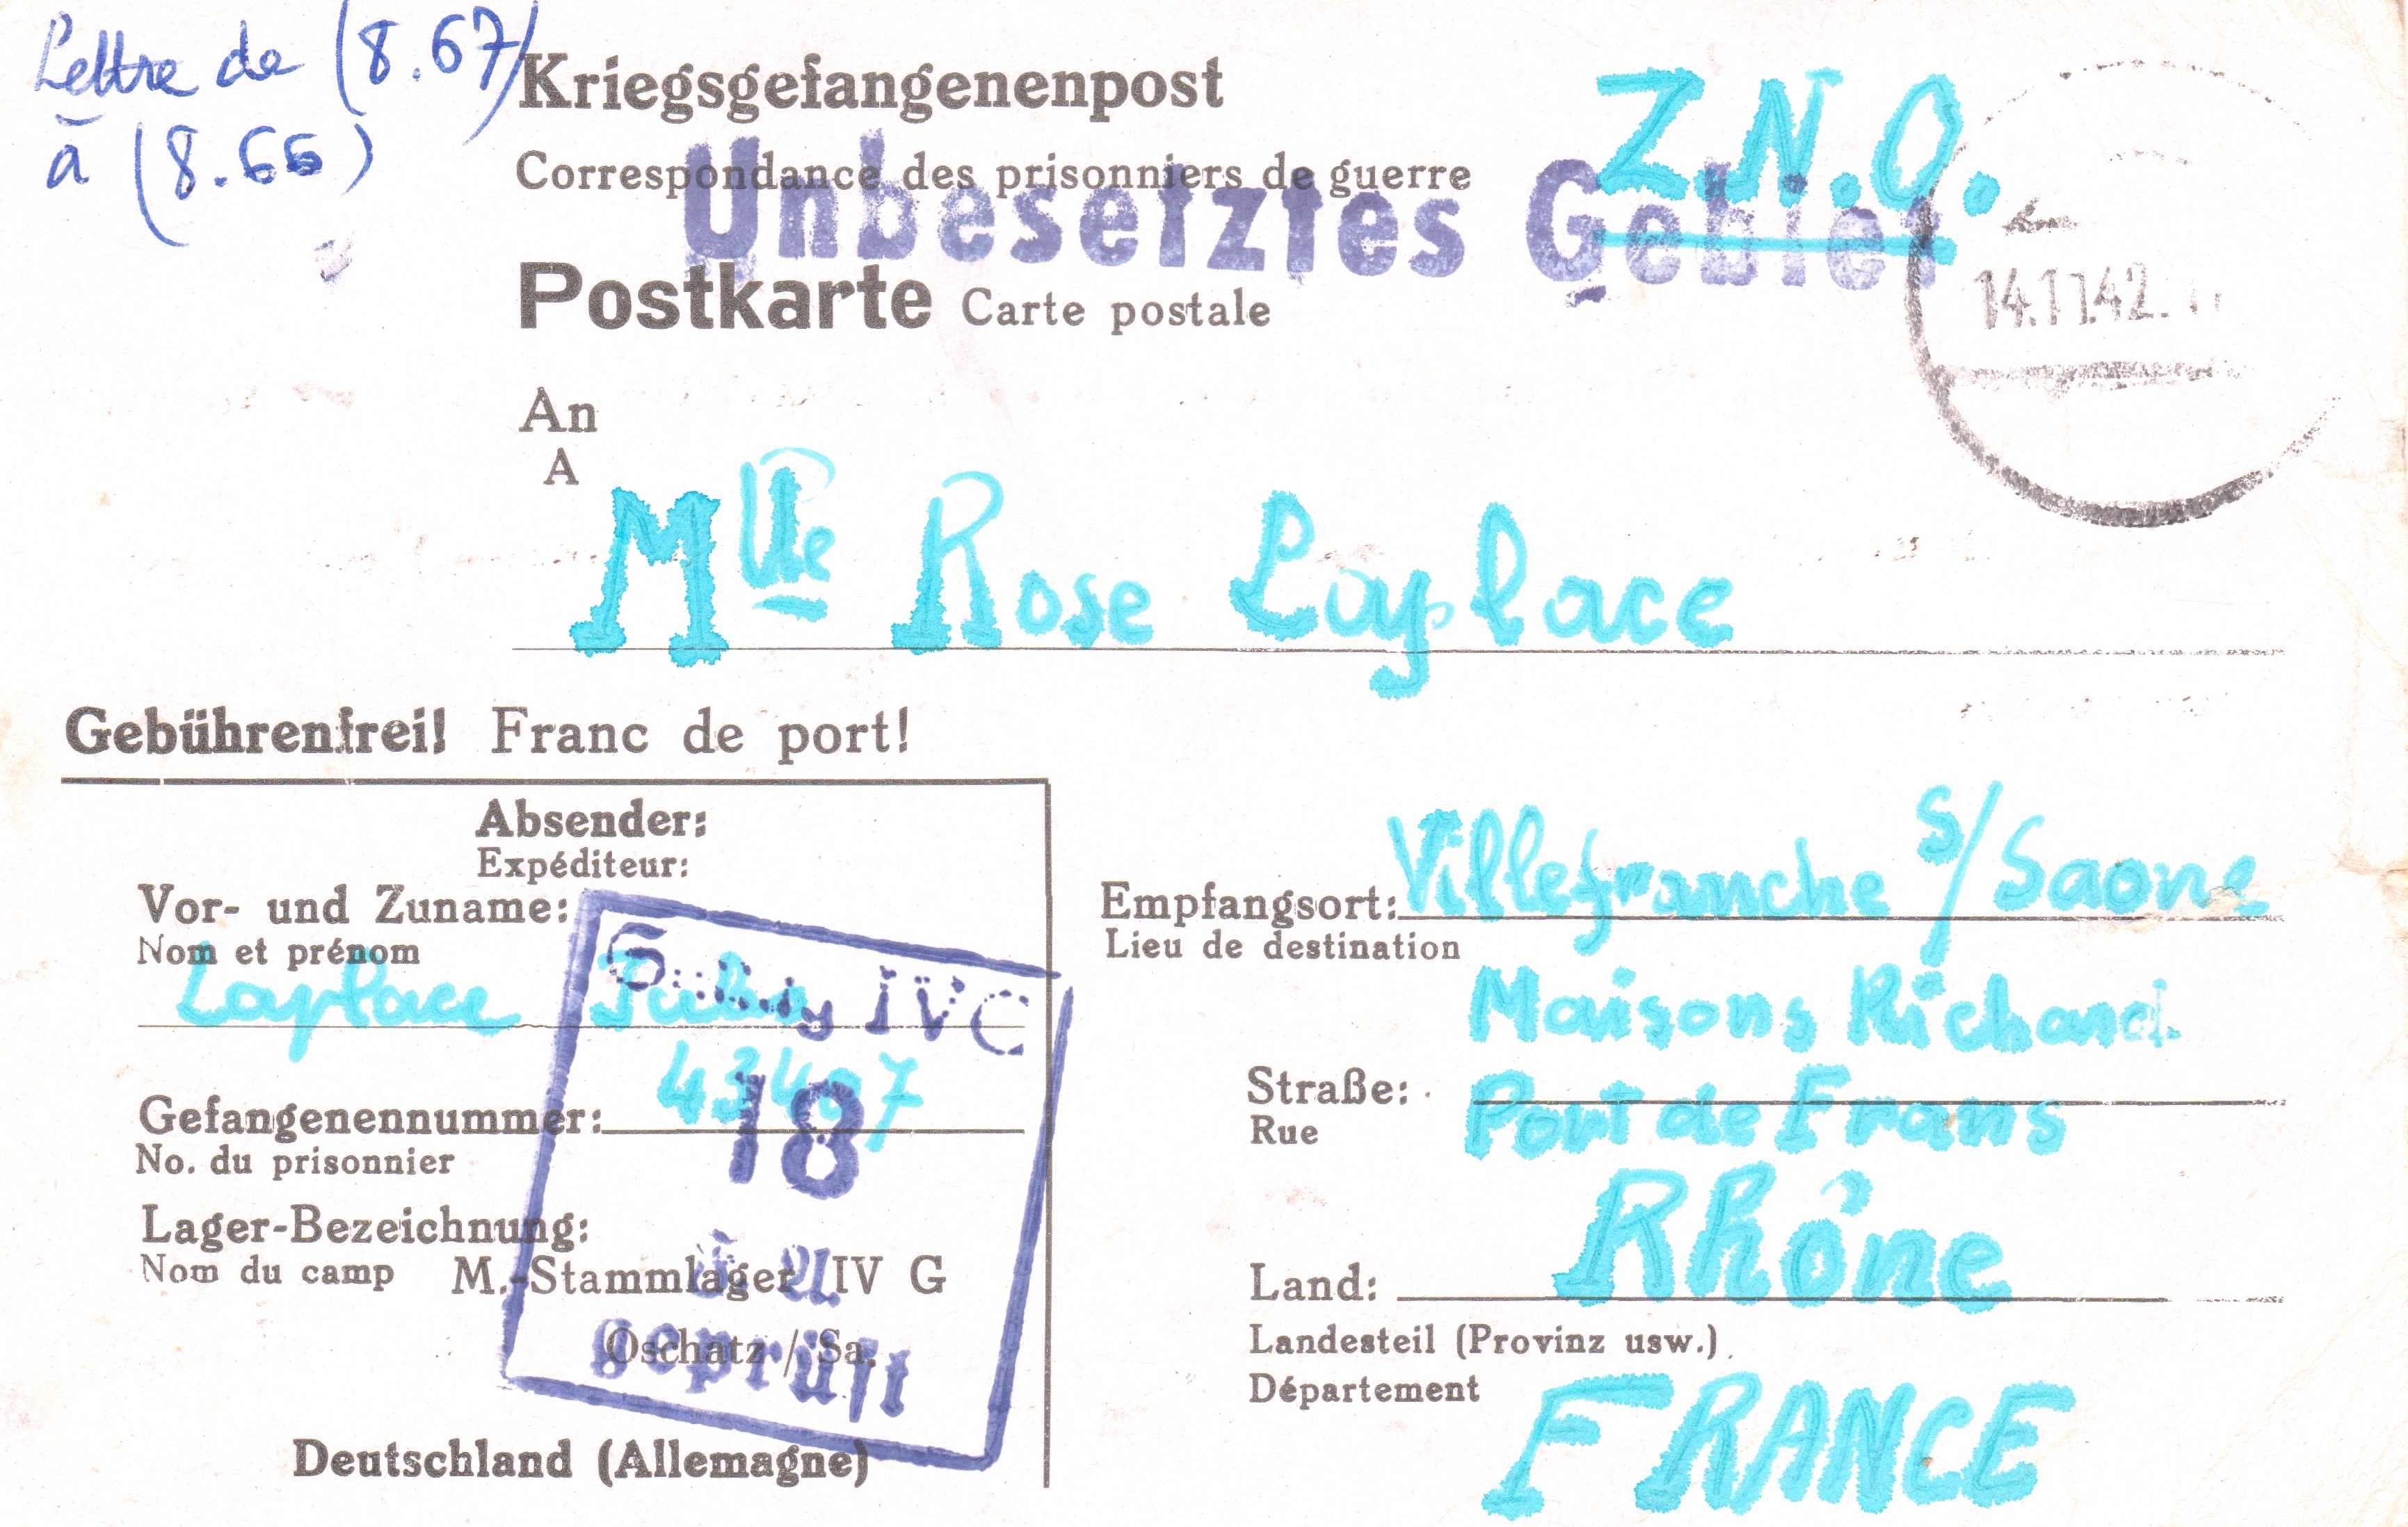 Lettre de (8.67)
à (8.66)
Kriegsgefangenenpost
Correspondance des prisonniers de guerre
Z.N.O.
Unbesetztes Gebiet
Postkarte Carte postale
14.11.42.
An
A
Mlle Rose Laplace
Gebührenfrei! Franc de port!
Absender:
Expéditeur:
Vor- und Zuname:
Nom et prénom
Laplace
Gefangenennummer: 43407
No. du prisonnier
Lager-Bezeichnung:
Nom du camp M.-Stammlager IV G
Oschatz / Sa.
Deutschland (Allemagne)
IV G
18
geprüft
Empfangsort: Villefranche s/ Saone
Lieu de destination
Maisons Richard
Straße:
Rue
Port de Frans
Rhône
Land:
Landesteil (Provinz usw.)
Département
FRANCE